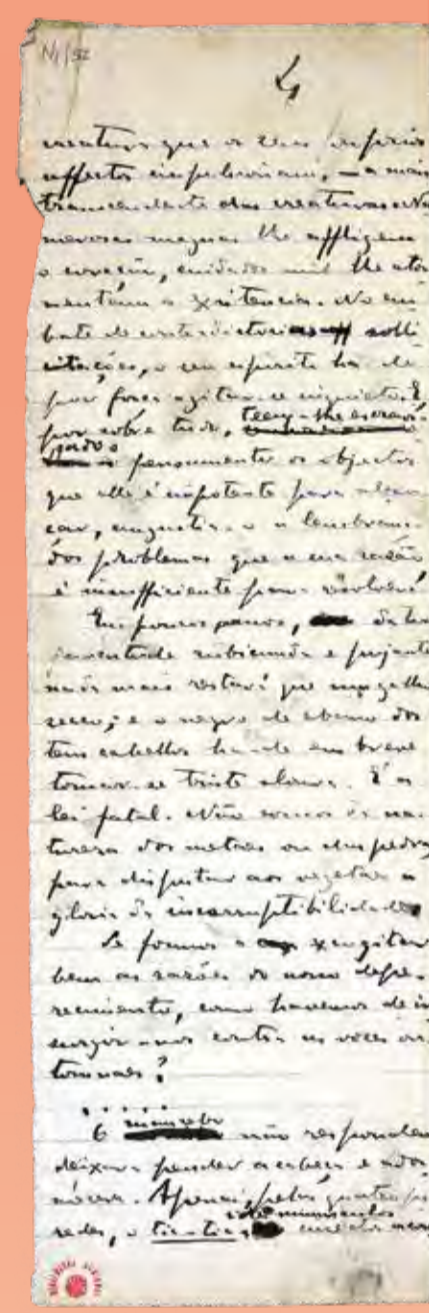 N1/32
4
creaturas que os seus
affectos impulsionam, — a mais
transcendente das creaturas. Nu
merosas maguas lhe affligem
o coração, cuidados mil lhe ator
mentam a existencia. No em
bate de contradictorias solli
citações, o seu espirito ha de
por força agitar-se inquieto. E,
por sôbre tudo, teem-lhe escravi-
sado o pensamento os objectos
que elle é impotente para alcan
çar, angustia-o a lembrança
dos problemas que a sua razão
é insufficiente para resolver!
Em poucos annos, da tua
juventude rubicunda e pujante
nada mais restará que um galho
secco; e o negro de ebano dos
teus cabellos ha-de em breve
tornar-se triste alvura. É a
lei fatal. Não somos da na
tureza dos metaes ou das pedras
para disputar aos vegetaes a
gloria da incorruptibilidade
Se formos a excogitar
bem as razões do nosso depe-
recimento, como havemos de in
surgir-nos contra as vozes ou
tomnaes?
. . . . . .
O mancebo não respondeu
deixara pender a cabeça e ador
mecera. Apenas, pelas quatro pa
redes, o tic-tic dos minusculos insectos